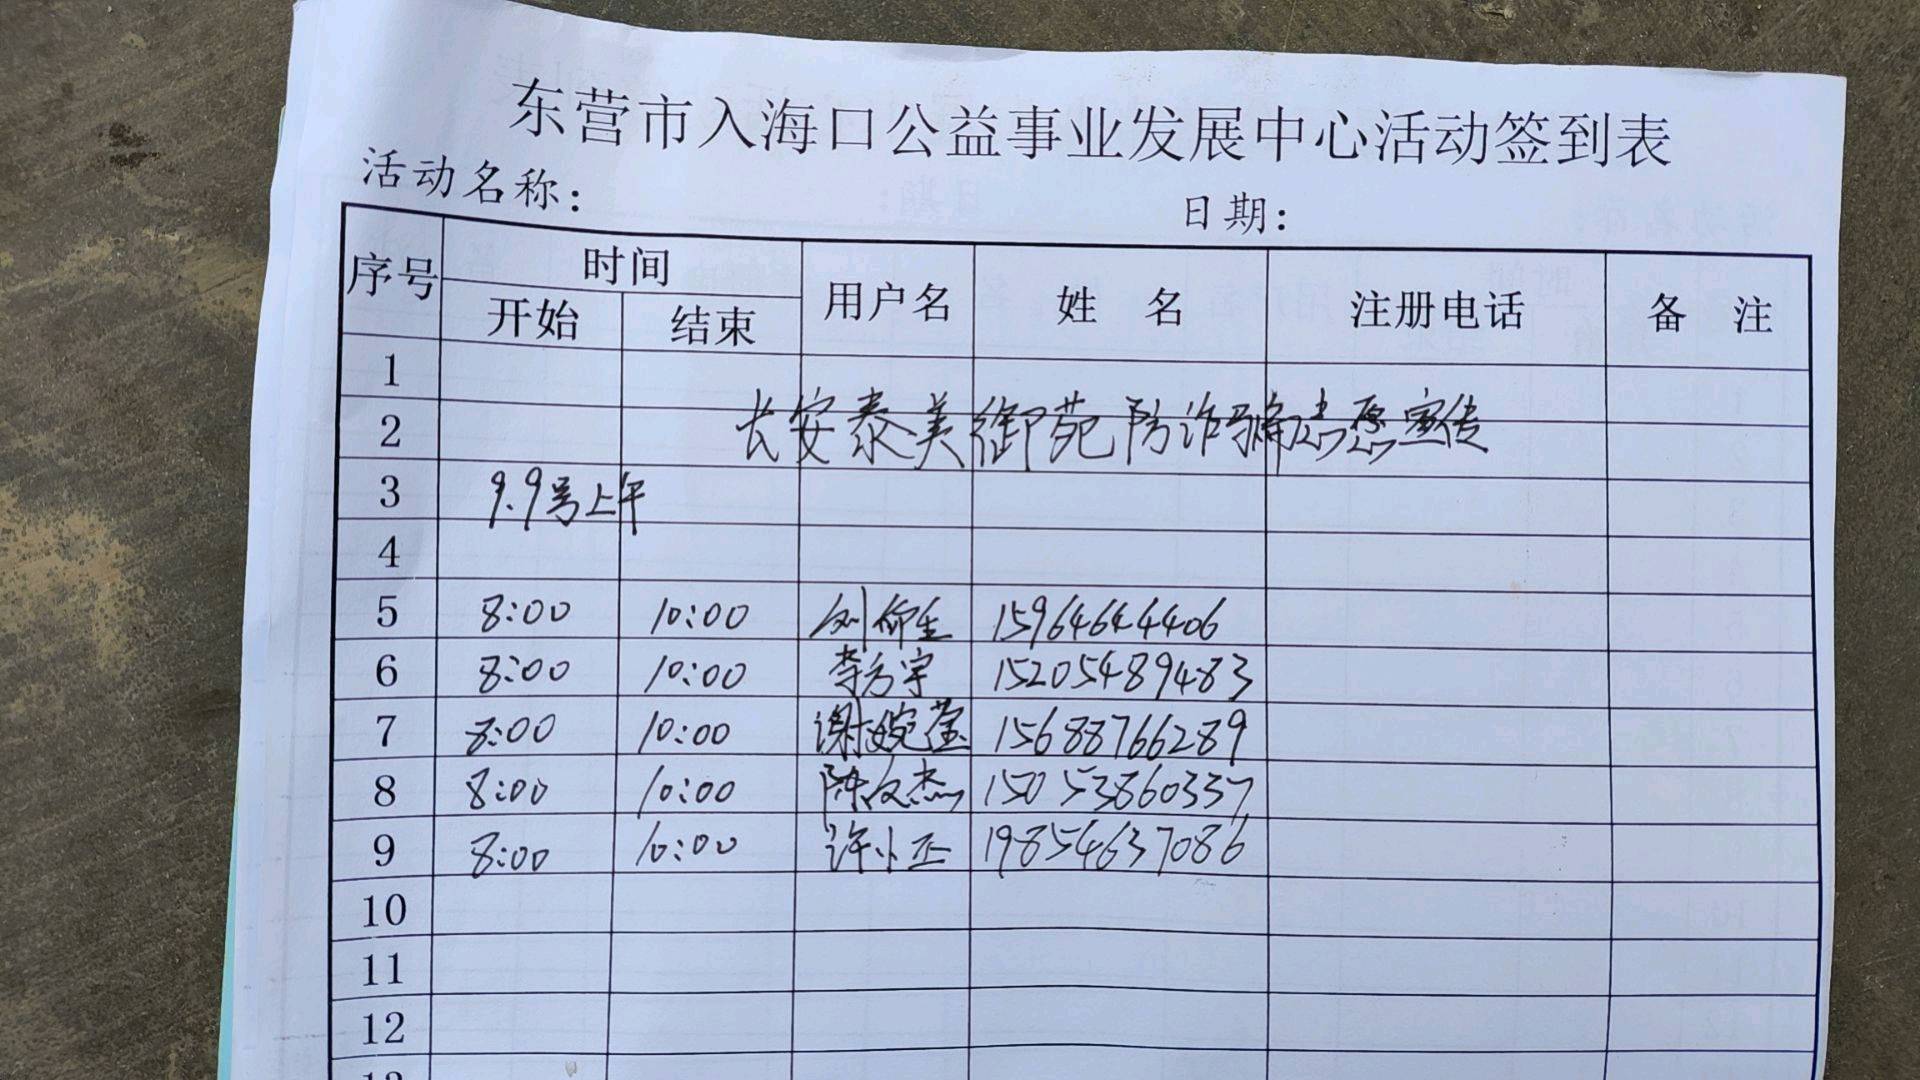 东营市入海口公益事业发展中心活动签到表
活动名称： 日期：
序号 时间 用户名 姓 名 注册电话 备 注
开始 结束
1
2 长安泰美御苑防诈骗志愿宣传
3 9.9号上午
4
5 8:00 10:00 刘仰生 15964644406
6 8:00 10:00 李方宇 15205489483
7 8:00 10:00 谢婉莹 15688766289
8 8:00 10:00 陈文杰 15053860337
9 8:00 10:00 许小正 19854637086
10
11
12
13